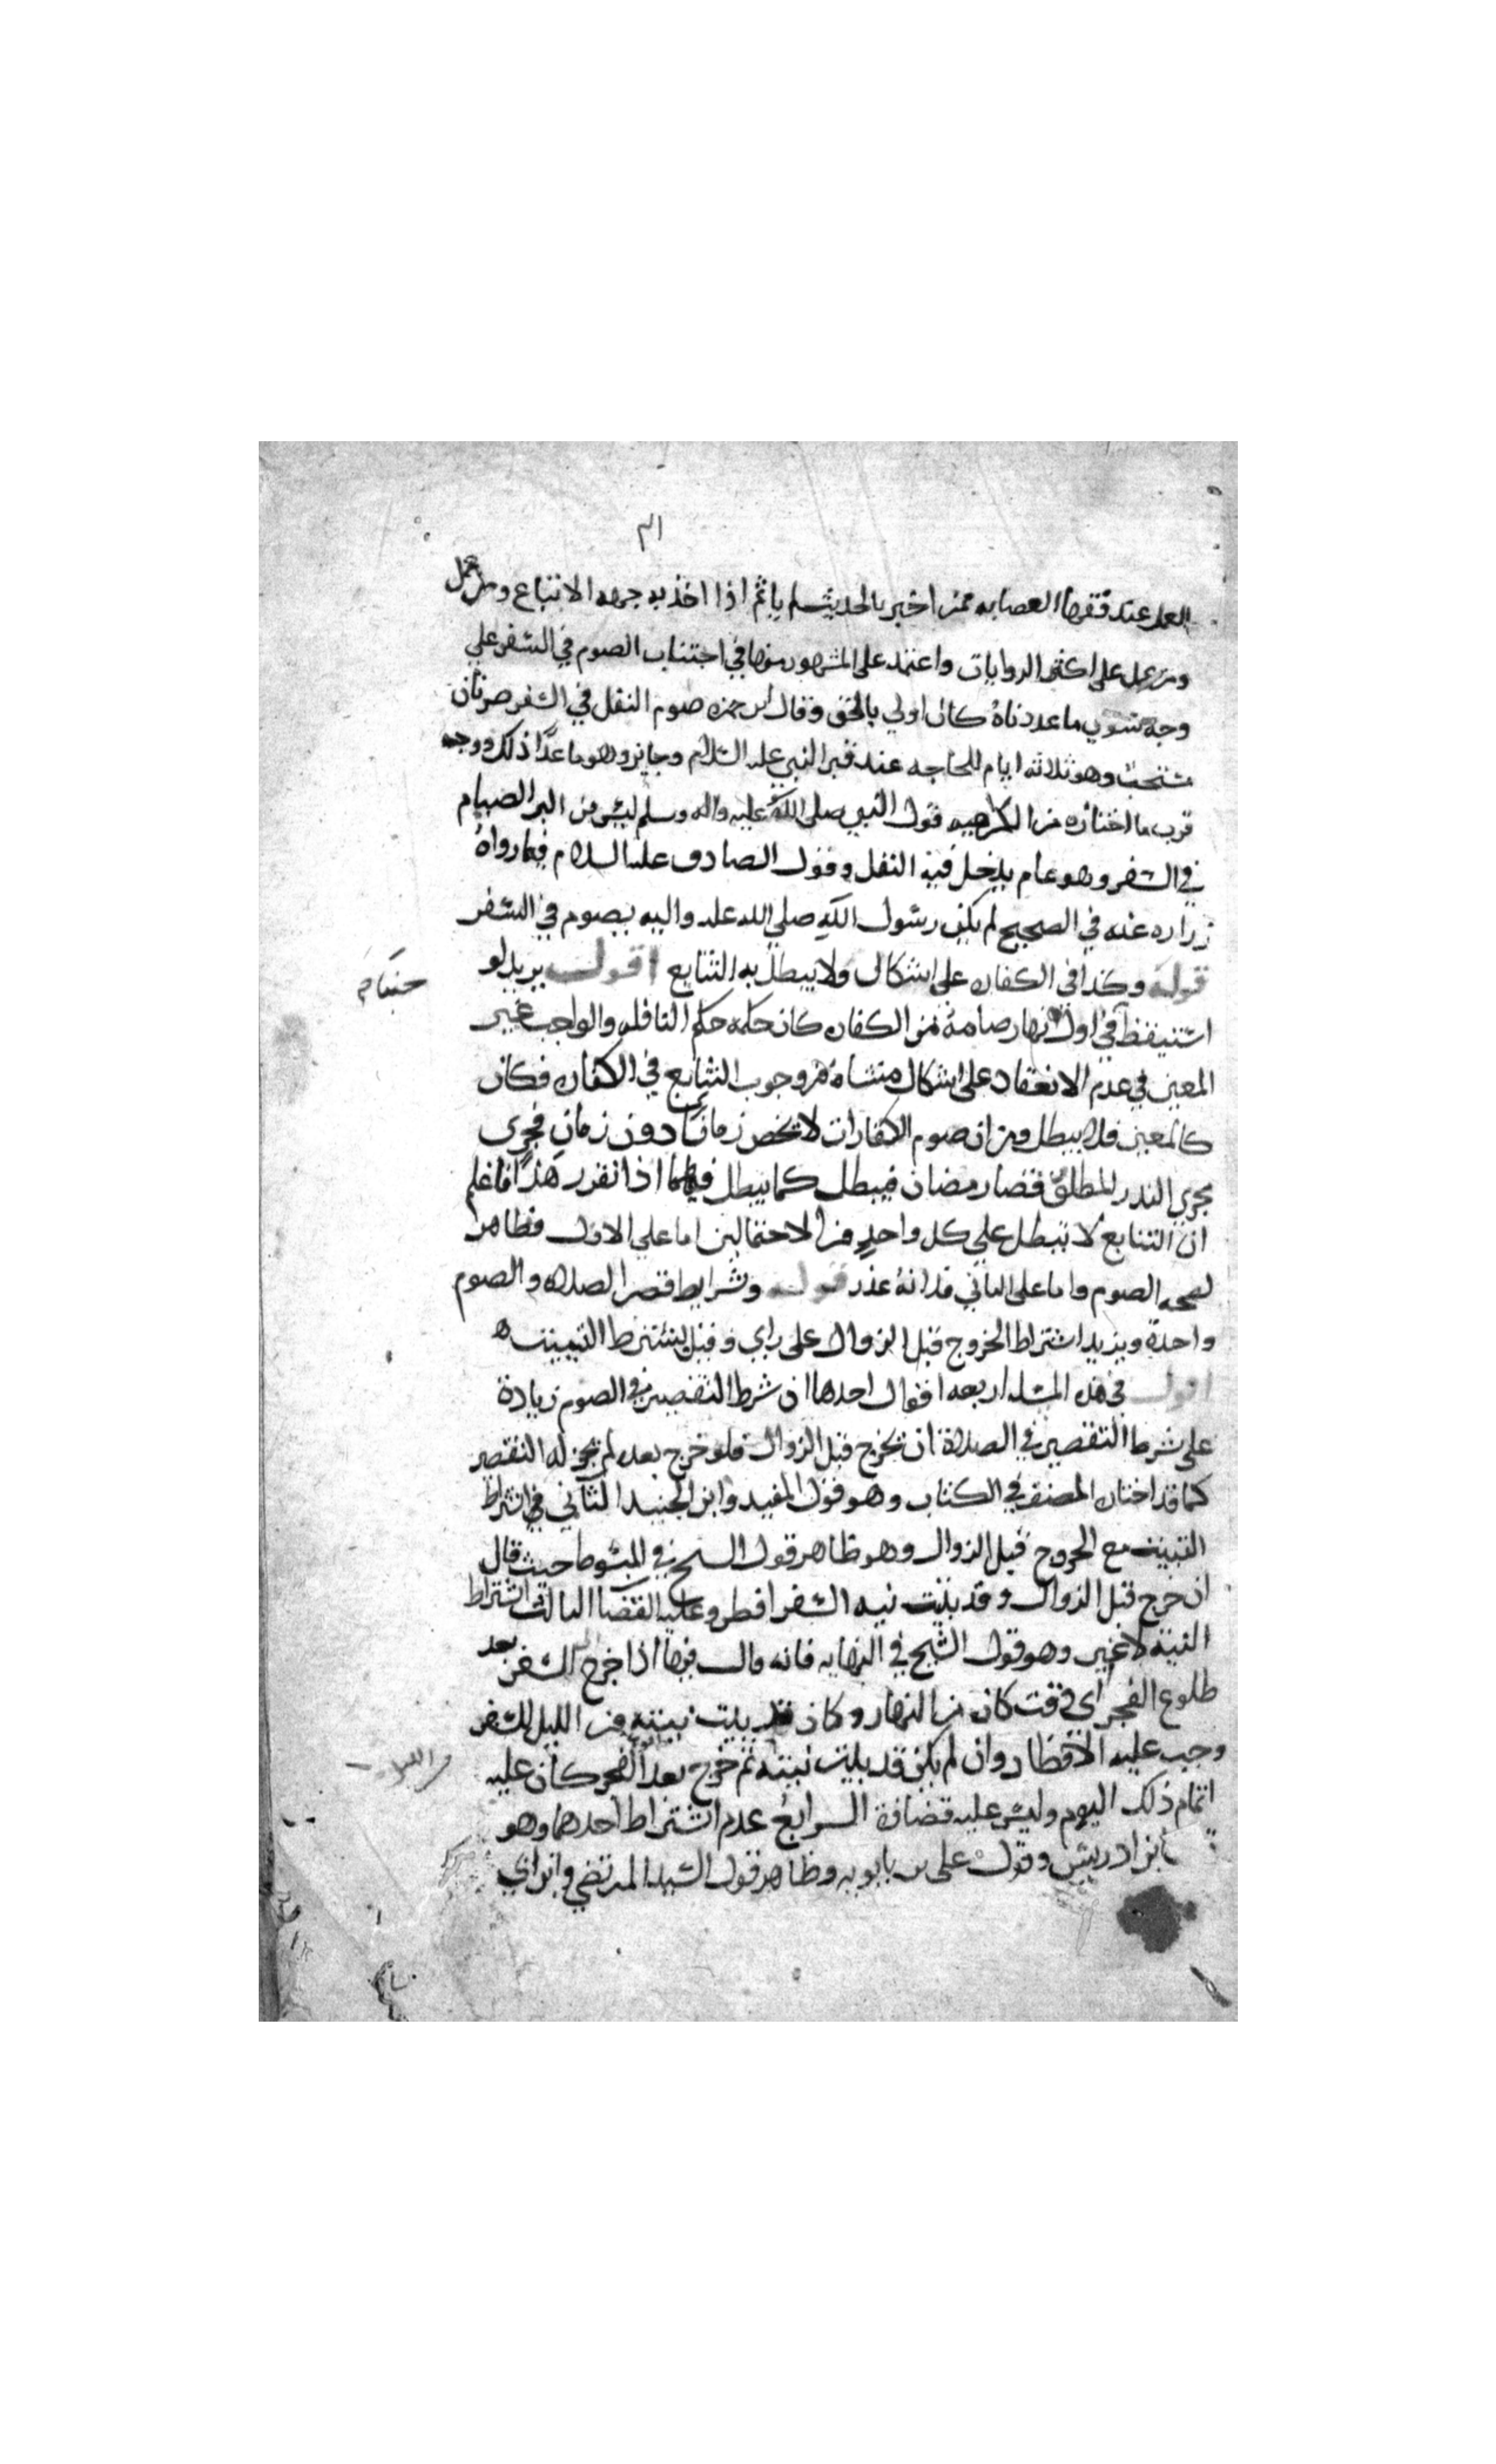 العمل عند فقهاء العصابه فمن اخبر بالحديث لم ياثم اذا اخذ به جهه الاتباع ومن عمل
ومن عمل على اكثر الروايات واعتمد على المشهور منها في اجتناب الصوم في السفر على
وجه سوى ما عددناه كان اولى بالحق وقال ابن حمزه صوم النفل في السفر ضربان
مستحب وهو ثلاثه ايام للحاجه عند قبر النبي عليه السلام وجايز وهو ما عدا ذلك ووجه
قرب ما اختاره من الكراهيه قول النبي صلى الله عليه واله وسلم ليس من البر الصيام
في السفر وهو عام يدخل فيه النفل وقول الصادق عليه السلام فيما رواه
زراره عنه في الصحيح لم يكن رسول الله صلى الله عليه واله يصوم في السفر
قوله وكذا في الكفاره على اشكال ولا يبطل به التتابع اقول يريد لو
استيقظ في اول نهار صامه من الكفاره كان حكمه حكم النافله والواجب غير
المعين في عدم الانعقاد على اشكال منشاه من وجوب التتابع في الكفاره فكان
كالمعين فلا يبطل ومن ان صوم الكفارات لا يخص زمانا دون زمان فجرى
مجرى النذر المطلق وقضا رمضان فيبطل كما يبطل فيهما اذا تقرر هذا فاعلم
ان التتابع لا تبطل على كل واحد من الاحتمالين اما على الاول فظاهر
لصحه الصوم واما على الثاني فلانه عذر قوله وشرايط قصر الصلاه والصوم
واحدة ويزيد اشتراط الخروج قبل الزوال على راي وقيل يشترط التبييت
اقول في هذه المسئله اربعه اقوال احدها ان شرط التقصير في الصوم زيادة
على شرط التقصير في الصلاة ان يخرج قبل الزوال فلو خرج بعده لم يجز له التقصير
كما قد اختاره المصنف في الكتاب وهو قول المفيد وابن الجنيد الثاني في اشتراط
التبييت مع الخروج قبل الزوال وهو ظاهر قول الشيخ في المبسوط حيث قال
ان خرج قبل الزوال وقد بيت نيه السفر افطر وعليه القضا الثالث اشتراط
النيه لا غير وهو قول الشيخ في النهايه فانه قال فيها اذا خرج الى السفر بعد
طلوع الفجر اي وقت كان من النهار وكان قد بيت نيته من الليل للسفر
وجب عليه الافطار وان لم يكن قد بيت نيته ثم خرج بعد الفجر كان عليه
اتمام ذلك اليوم وليس عليه قضاؤه الرابع عدم اشتراط احدهما وهو
ابن ادريس وقول على بن بابويه وظاهر قول السيد المرتضى وابن ابي